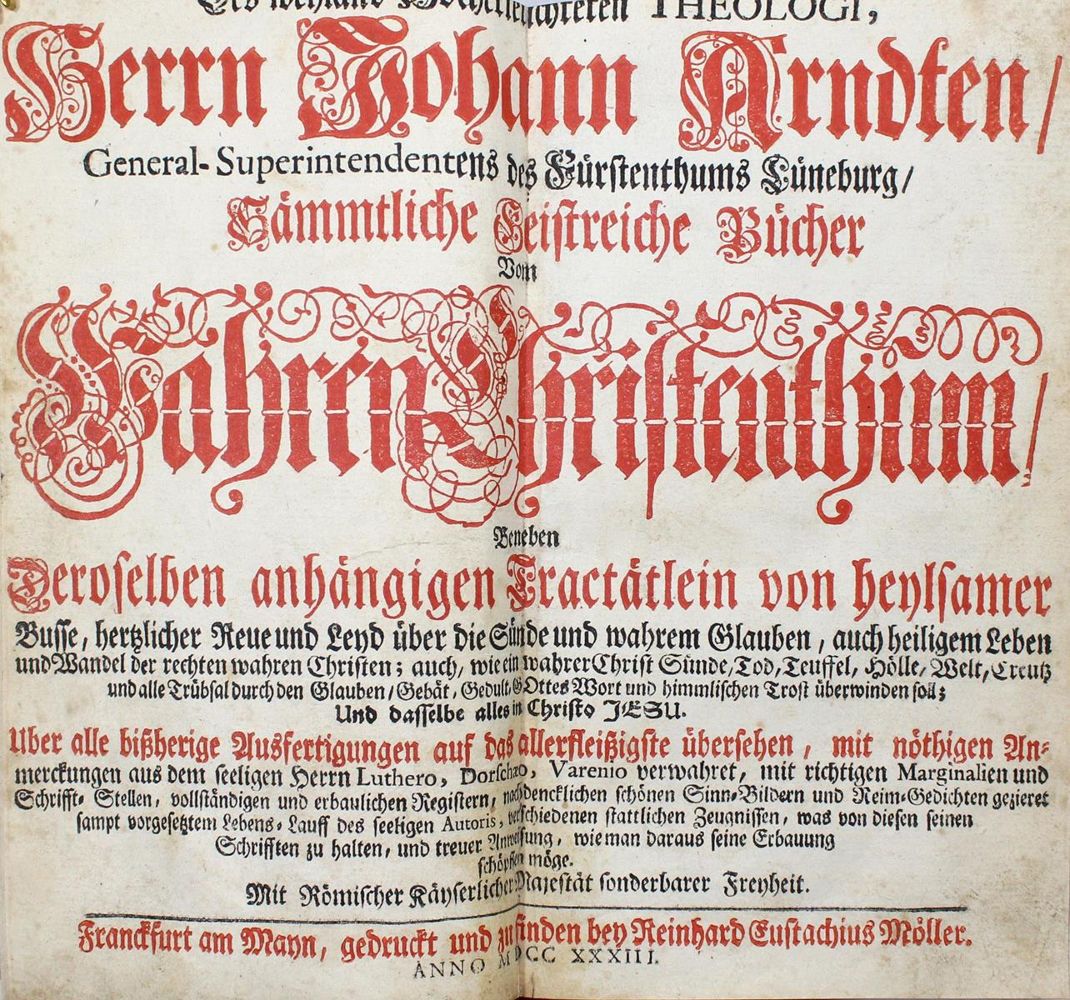 Des weyland Hocherleuchteten THEOLOGI,
Herrn Johann Arndten/
General-Superintendentens des Fürstenthums Lüneburg/
Sämmtliche Geistreiche Bücher
Vom
Wahren Christenthum/
Beneben
Deroselben anhängigen Tractätlein von heylsamer
Busse, hertzlicher Reue und Leyd über die Sünde und wahrem Glauben, auch heiligem Leben
und Wandel der rechten wahren Christen; auch, wie ein wahrer Christ Sünde, Tod, Teuffel, Hölle, Welt, Creutz
und alle Trübsal durch den Glauben/ Gebät, Gedult, GOttes Wort und himmlischen Trost überwinden soll;
Und dasselbe alles in Christo JESU.
Uber alle bißherige Ausfertigungen auf das allerfleißigste übersehen, mit nöthigen An-
merckungen aus dem seeligen Herrn Luthero, Dorscheo, Varenio verwahret, mit richtigen Marginalien und
Schrifft-Stellen, vollständigen und erbaulichen Registern, nachdencklichen schönen Sinn-Bildern und Reim-Gedichten gezieret
sampt vorgesetztem Lebens-Lauff des seeligen Autoris, verschiedenen stattlichen Zeugnissen, was von diesen seinen
Schrifften zu halten, und treuer Anweisung, wie man daraus seine Erbauung
schöpffen möge.
Mit Römischer Käyserlicher Majestät sonderbarer Freyheit.
Franckfurt am Mayn, gedruckt und zu finden bey Reinhard Eustachius Möller.
ANNO MDCC XXXIII.